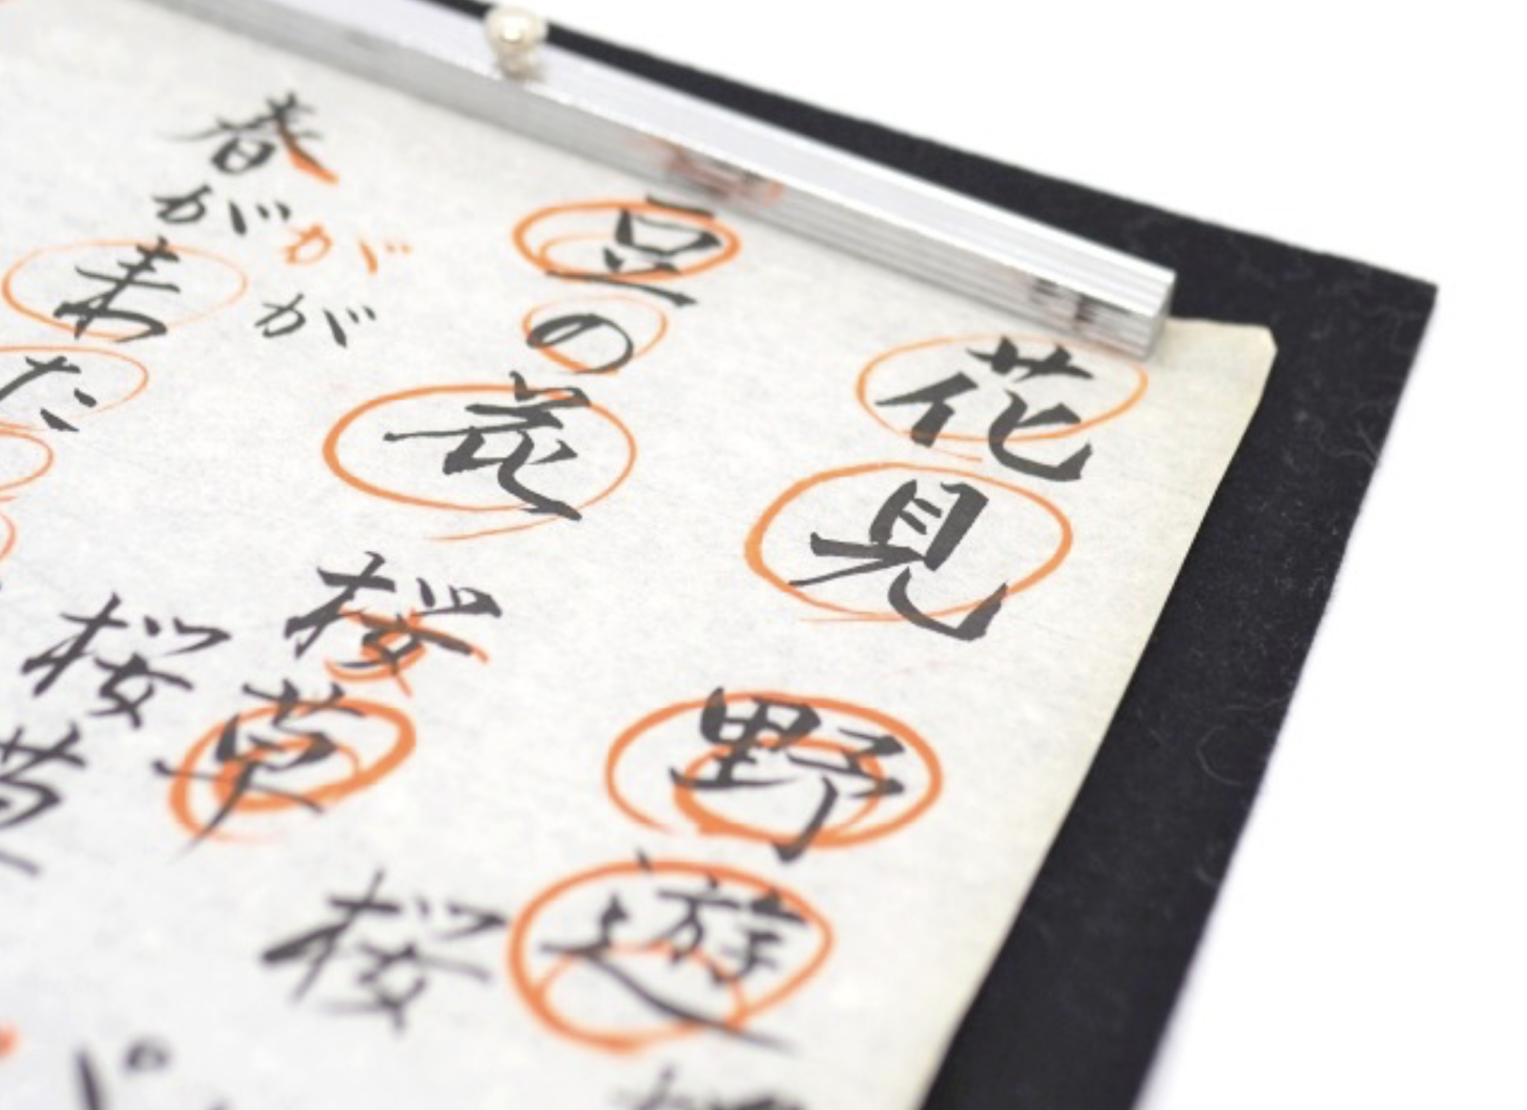 花見
野遊
豆の花
桜草
桜
春が来た
がが
桜草